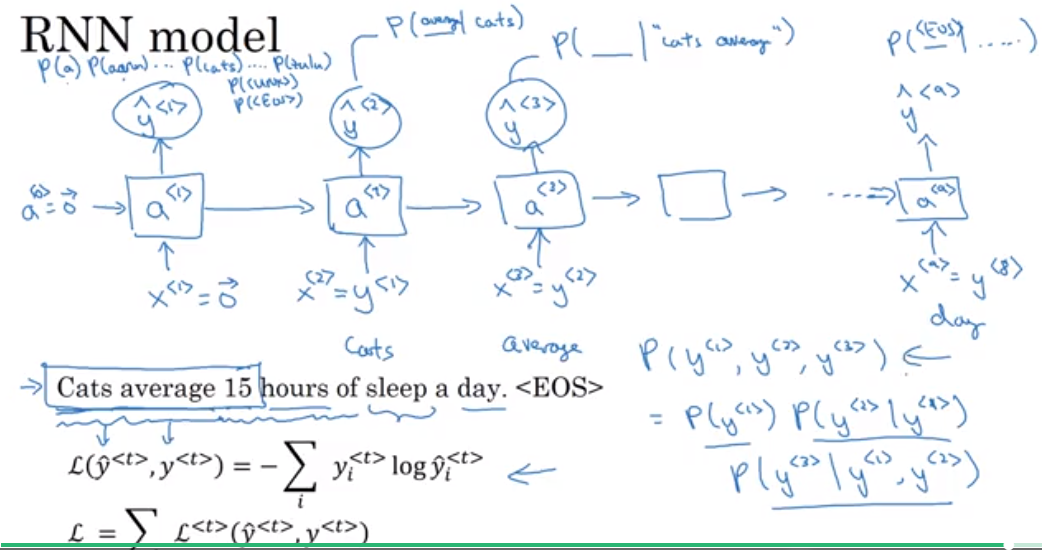 RNN model
P(a) P(aaron) ... P(cats) .... P(zulu)
P(<UNK>)
P(<EOS>)
P(average | cats)
P( __ | "cats average")
P(<EOS> | .....)
ŷ<1> ŷ<2> ŷ<3> ŷ<9>
a<0> = 0⃗ a<1> a<2> a<3> a<9>
x<1> = 0⃗ x<2> = y<1> x<3> = y<2> x<9> = y<8>
Cats average day
Cats average 15 hours of sleep a day. <EOS>
P(y<1>, y<2>, y<3>)
= P(y<1>) P(y<2> | y<1>)
P(y<3> | y<1>, y<2>)
ℒ(ŷ<t>, y<t>) = − ∑ᵢ yᵢ<t> log ŷᵢ<t>
ℒ = ∑ ℒ<t>(ŷ<t>, y<t>)